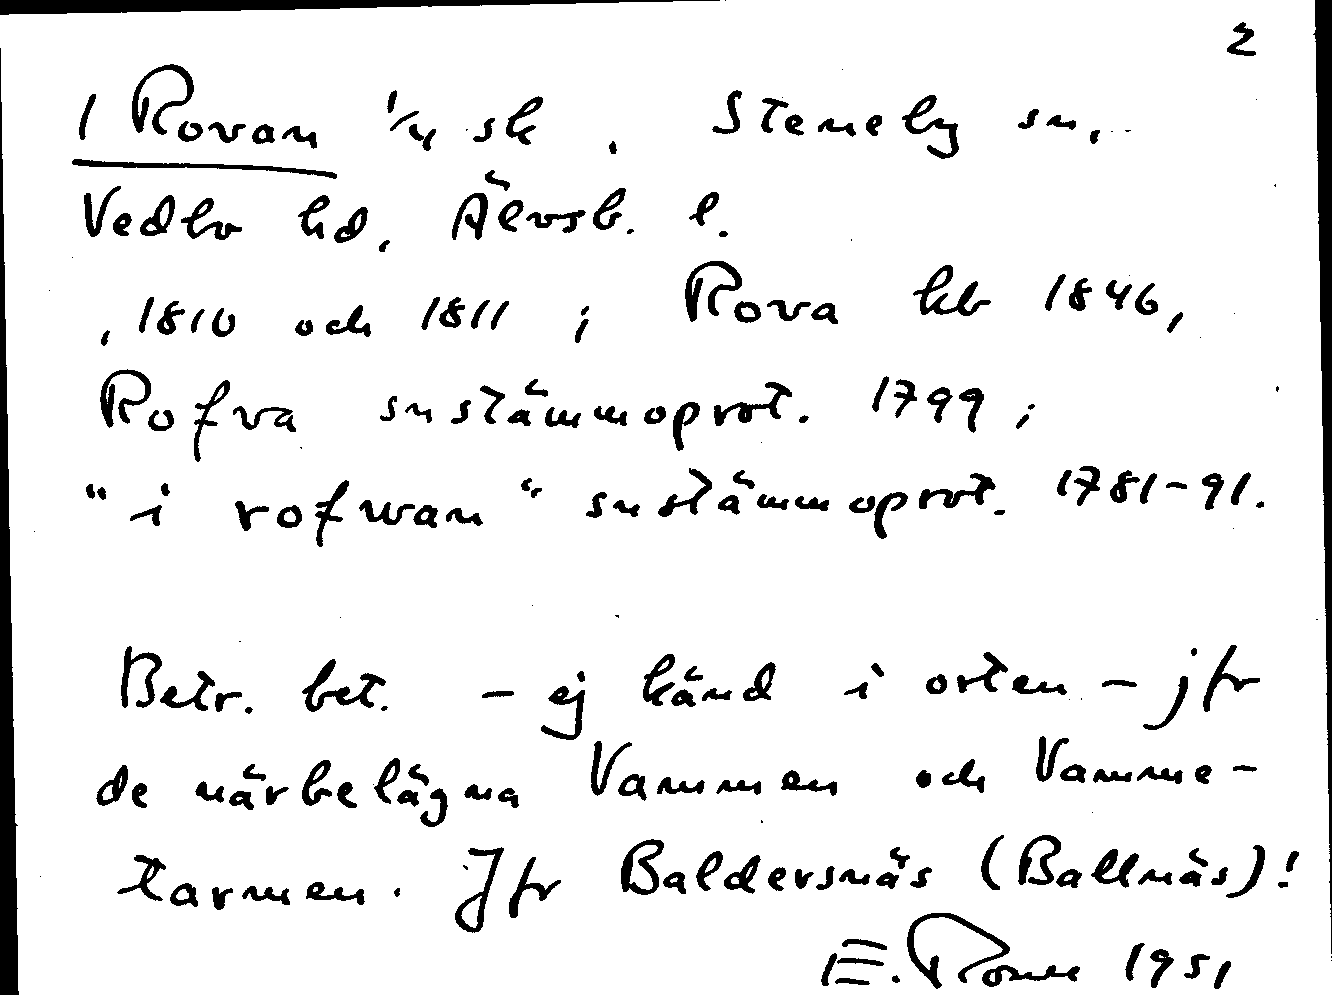 2
/ Rovan 1/4 sk. Steneby sn.
Vedbo hd, Älvsb. l.
, 1810 och 1811 ; Rova kb 1846,
Rofva snstämmoprot. 1799 ;
"i rofwan" snstämmoprot. 1781-91.
Betr. bet. - ej känd i orten - jfr
de närbelägna Vammen och Vamme-
tarmen. Jfr Baldersnäs (Ballnäs)!
E. 1951